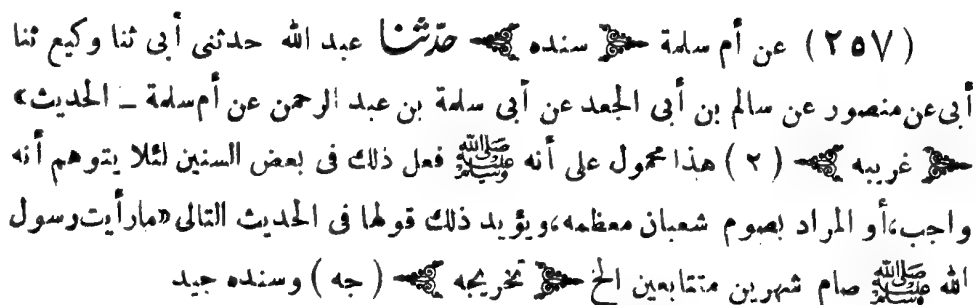 (٢٥٧) عن أم سلمة ﴿ سنده ﴾ حدّثنا عبد الله حدثنى أبى ثنا وكيع ثنا
أبى عن منصور عن سالم بن أبى الجعد عن أبى سلمة بن عبد الرحمن عن أم سلمة ــ الحديث»
﴿ غريبه ﴾ (٢) هذا محمول على أنه ﷺ فعل ذلك فى بعض السنين لئلا يتوهم أنه
واجب، أو المراد بصوم شعبان معظمه، ويؤيد ذلك قولها فى الحديث التالى «ما رأيت رسول
الله ﷺ صام شهرين متتابعين الخ ﴿ تخريجه ﴾ (جه) وسنده جيد